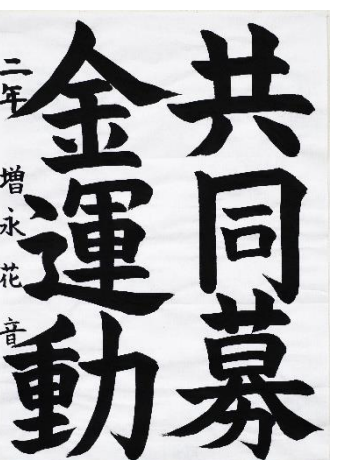 共同募
金運動
二年 増永花音